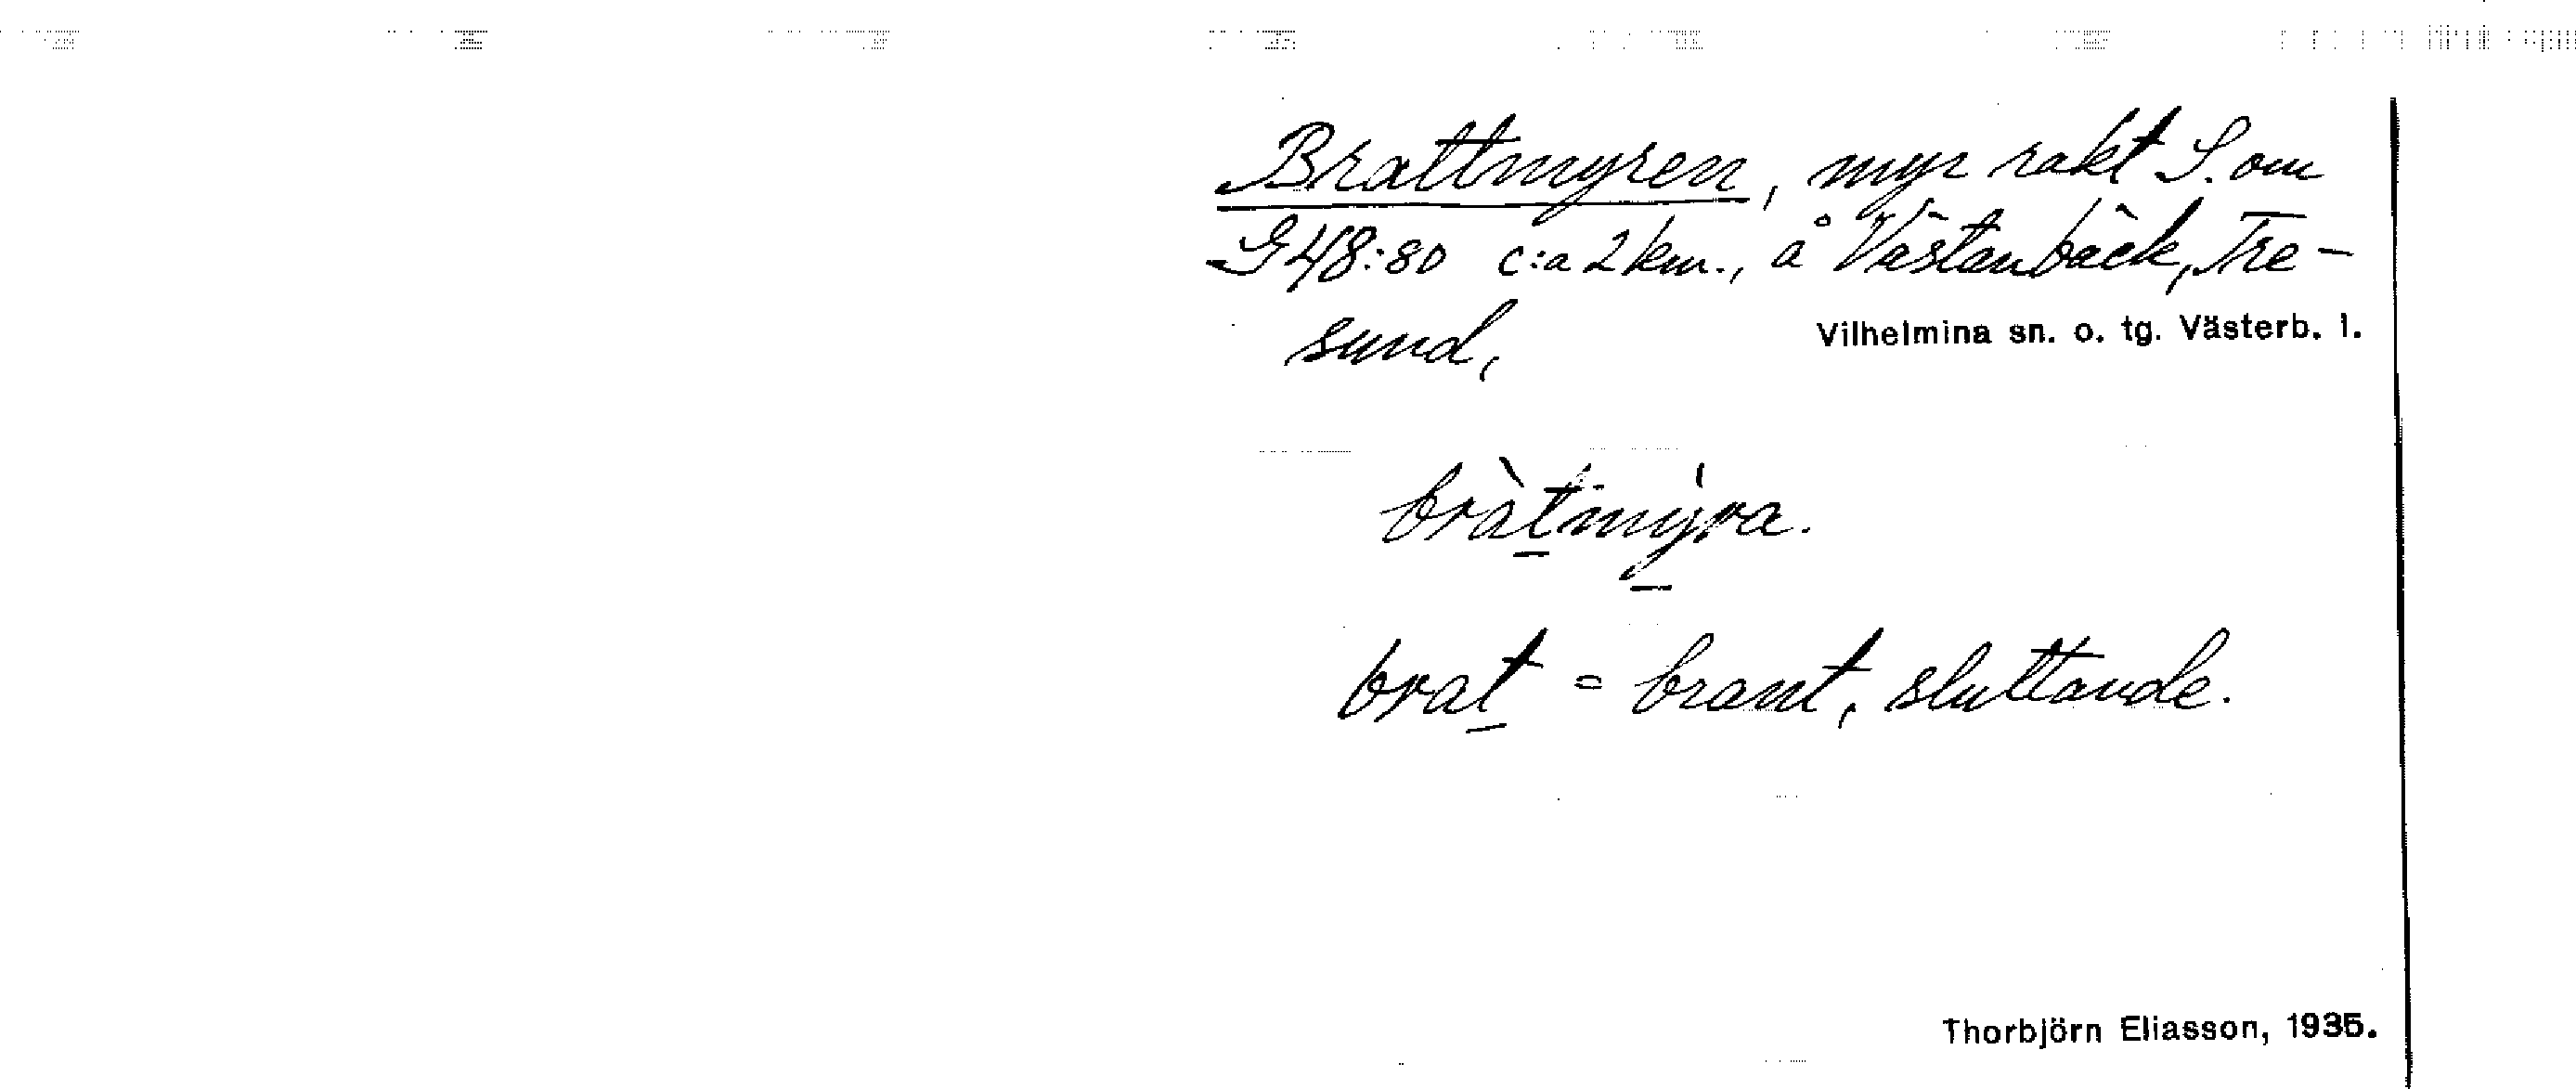 Brattmyren, myr rakt S. om
G 48:80 c:a 2 km., å Västanbäck, Tre-
sund,
Vilhelmina sn. o. tg. Västerb. l.
bràtmýra.
brat = brant, sluttande.
Thorbjörn Eliasson, 1935.